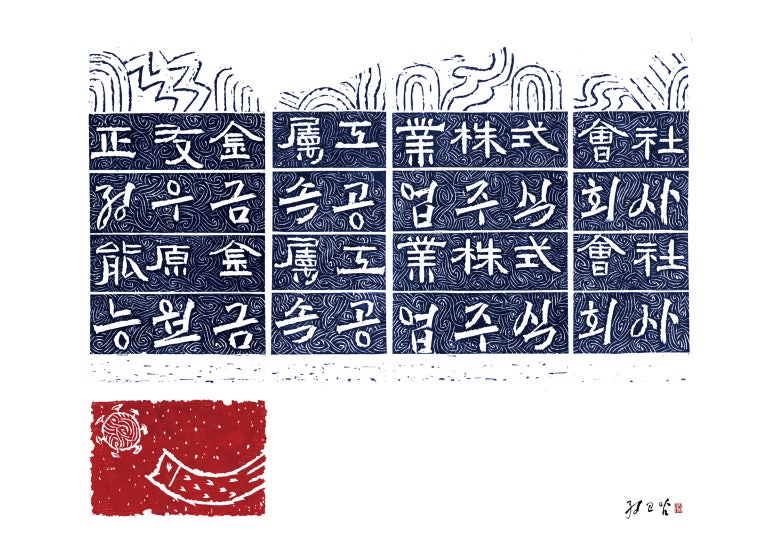 正友金屬工業株式會社
정우금속공업주식회사
能原金屬工業株式會社
능원금속공업주식회사
정고암